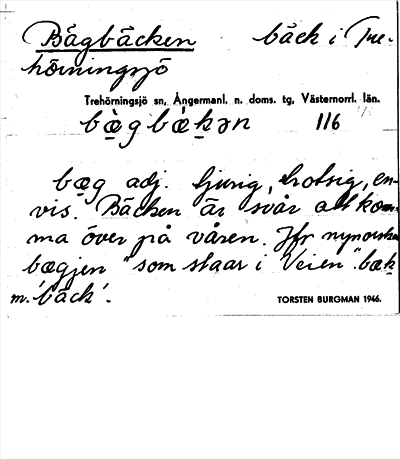 Bågbäcken bäck i Tre-
hörningsjö
Trehörningsjö sn, Ångermanl. n. doms. tg, Västernorrl. län.
bæ̀gbækən 116
bæg adj. ljurig, trotsig, en-
vis. Bäcken är svår att kom-
ma över på våren. Jfr nynorska
bægjen "som staar i Veien". bæk
m. 'bäck'.
TORSTEN BURGMAN 1946.